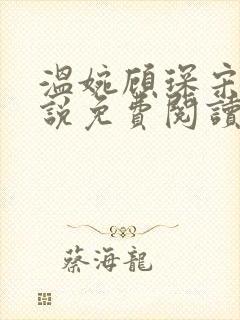 溫婉顧琛宋
說免費閱讀
蔡海龍